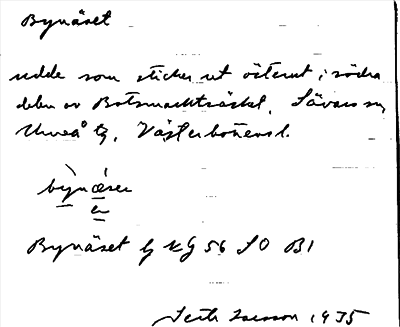 Bynäset
udde som sticker ut österut i södra
delen av Botsmarkträsket. Sävars sn,
Umeå tg, Västerbottens l.
bỳnǽser
er
Bynäset tg kg 56 SO B1
1935